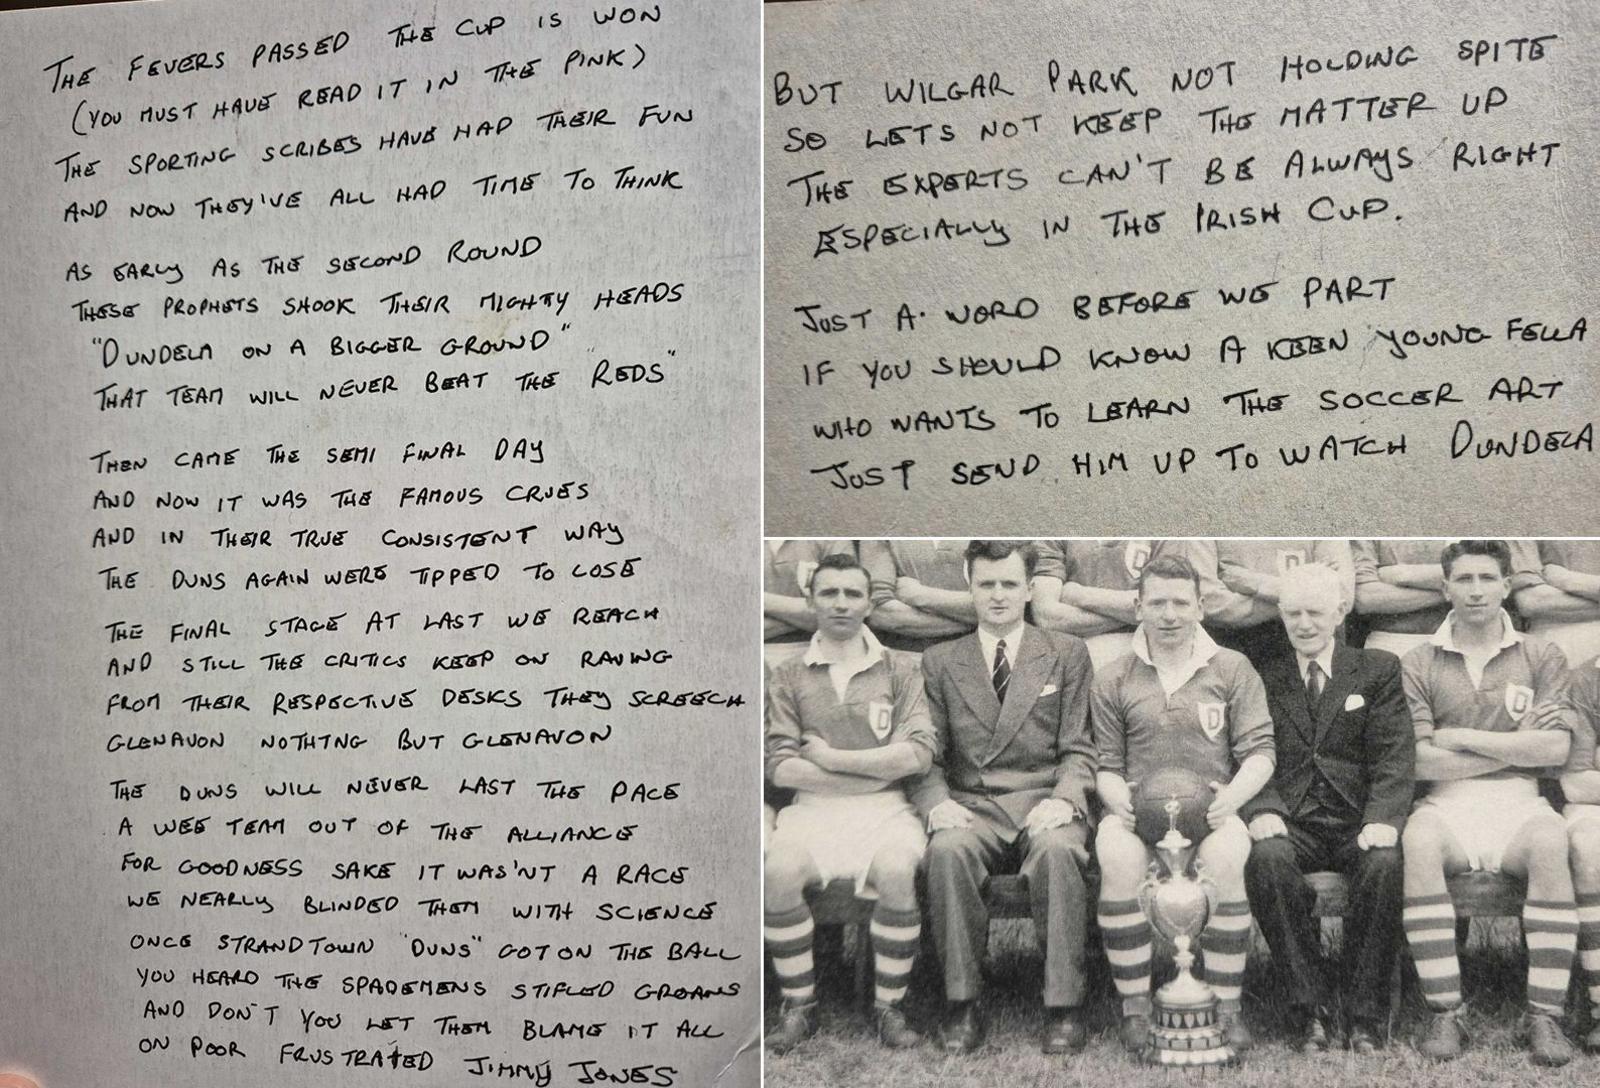 THE FEVERS PASSED THE CUP IS WON
(YOU MUST HAVE READ IT IN THE PINK)
THE SPORTING SCRIBES HAVE HAD THEIR FUN
AND NOW THEY'VE ALL HAD TIME TO THINK
AS EARLY AS THE SECOND ROUND
THESE PROPHETS SHOOK THEIR MIGHTY HEADS
"DUNDELA ON A BIGGER GROUND"
THAT TEAM WILL NEVER BEAT THE "REDS"
THEN CAME THE SEMI FINAL DAY
AND NOW IT WAS THE FAMOUS CRUES
AND IN THEIR TRUE CONSISTENT WAY
THE DUNS AGAIN WERE TIPPED TO LOSE
THE FINAL STAGE AT LAST WE REACH
AND STILL THE CRITICS KEEP ON RAVING
FROM THEIR RESPECTIVE DESKS THEY SCREECH
GLENAVON NOTHING BUT GLENAVON
THE DUNS WILL NEVER LAST THE PACE
A WEE TEAM OUT OF THE ALLIANCE
FOR GOODNESS SAKE IT WAS'NT A RACE
WE NEARLY BLINDED THEM WITH SCIENCE
ONCE STRANDTOWN "DUNS" GOT ON THE BALL
YOU HEARD THE SPADEMENS STIFLED GROANS
AND DON'T YOU LET THEM BLAME IT ALL
ON POOR FRUSTRATED JIMMY JONES
BUT WILGAR PARK NOT HOLDING SPITE
SO LETS NOT KEEP THE MATTER UP
THE EXPERTS CAN'T BE ALWAYS RIGHT
ESPECIALLY IN THE IRISH CUP.
JUST A WORD BEFORE WE PART
IF YOU SHOULD KNOW A KEEN YOUNG FELLA
WHO WANTS TO LEARN THE SOCCER ART
JUST SEND HIM UP TO WATCH DUNDELA
D
D
D
D
D